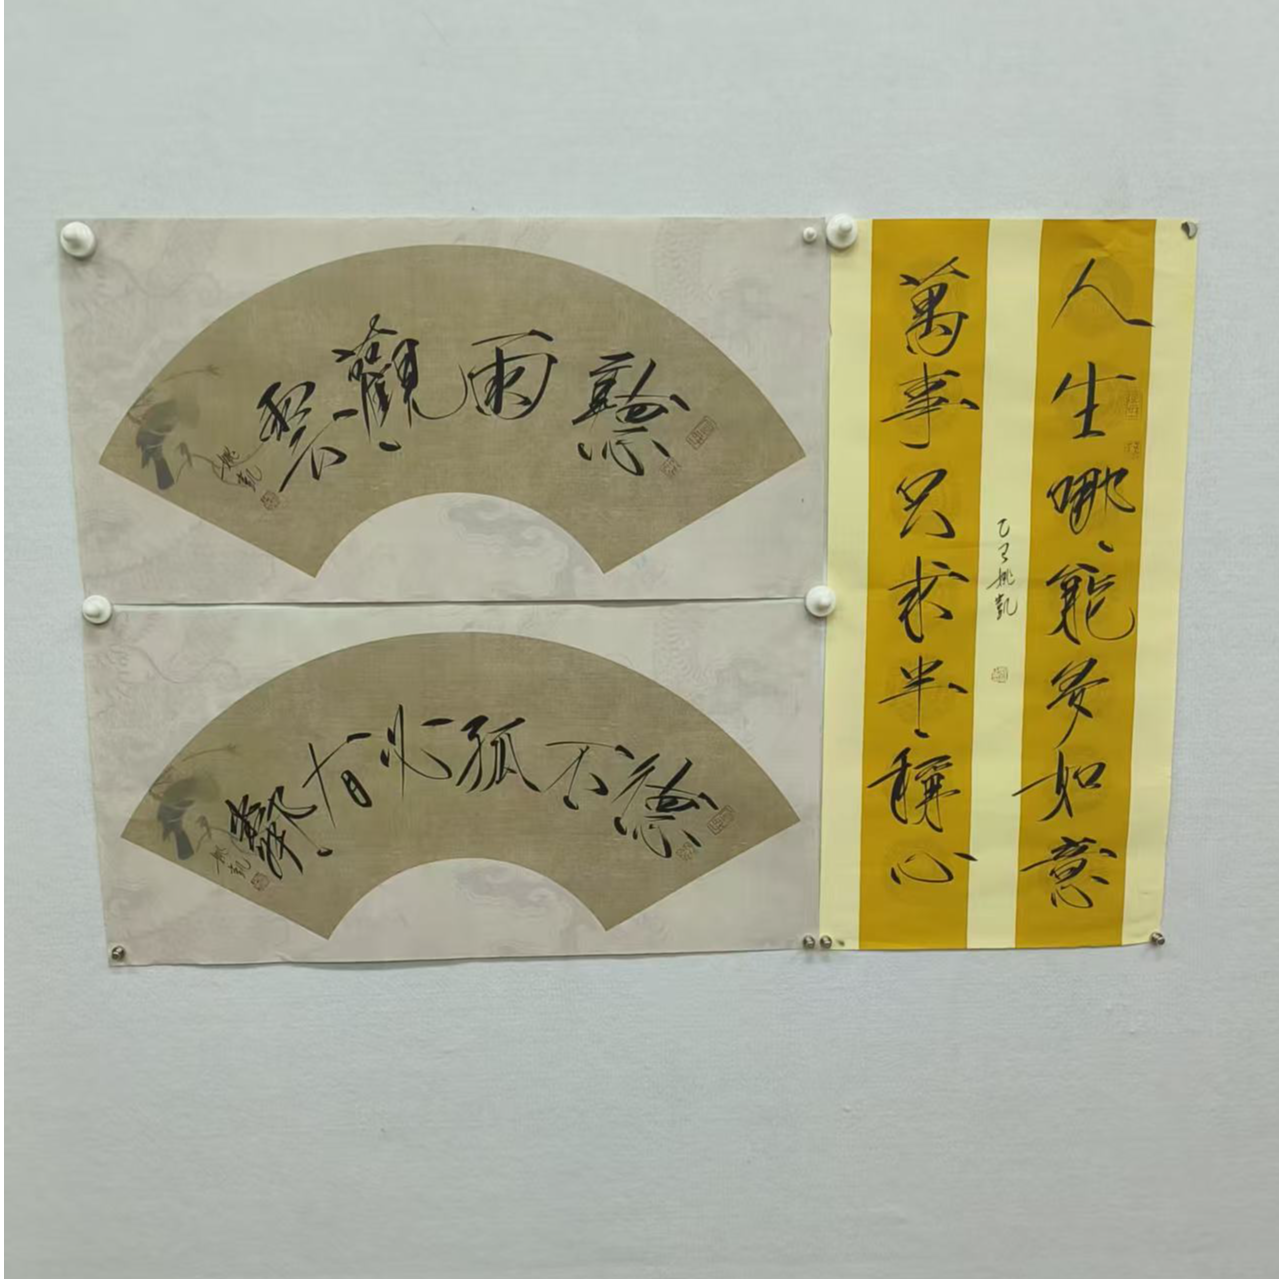 聽雨觀碧
姚凱
德不孤必有鄰
姚凱
人生哪能多如意
萬事只求半稱心
乙巳姚凱